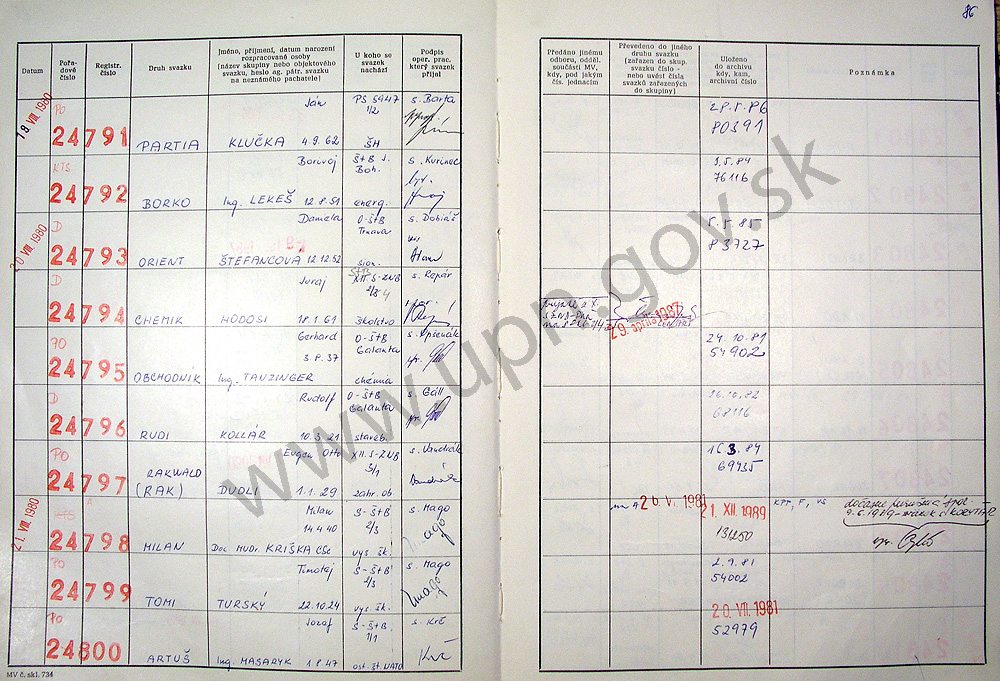 86
Datum
Pořa-
dové
číslo
Registr.
číslo
Druh svazku
Jméno, příjmení, datum narození
rozpracované osoby
[název skupiny nebo objektového
svazku, heslo ag. pátr. svazku
na neznámého pachatele]
U koho se
svazek
nachází
Podpis
oper. prac.
který svazek
přijal
Předáno jinému
odboru, odděl.
součásti MV,
kdy, pod jakým
čís. jednacím
Převedeno do jiného
druhu svazku
[zařazen do skup.
svazku číslo -
nebo uvést čísla
svazků zařazených
do skupiny]
Uloženo
do archivu
kdy, kam,
archivní číslo
Poznámka
19. VIII. 1980
PO
24791
PARTIA
Ján
KLUČKA 4.9.62
PS 5947
1/2
ŠH
s. Barta
28.5.86
80391
KTS
24792
BORKO
Borivoj
Ing. LEKEŠ 12.8.51
Š+B
Boh.
energ.
s. Kurinec
76116
20. VIII. 1980
D
24793
ORIENT
Daniela
ŠTEFANCOVA 12.12.52
O-Š+B
Trnava
sion.
s. Dobiáš
5.5.85
83727
D
24794
CHEMIK
Juraj
HODOSI 18.1.61
XII. S-ZNB
školstvo
s. Repár
1987
24795
OBCHODNÍK
Gerhard
3.8.37
Ing. TANZINGER
O-Š+B
Galanta
chémia
24.10.81
54902
D
24796
RUDI
Rudolf
KOLLÁR 10.3.21
O-Š+B
Galanta
staveb.
s. Gáll
68116
PO
24797
RAKWALD
(RAK)
Eugen Otto
DUDLI 1.1.29
XII. S-ZNB
3/1
zahr. ob.
s. Vandrák
16.3.84
69435
21. VIII. 1980
24798
MILAN
Milan
14.4.40
Doc MUDr. KRIŠKA CSc
S-Š+B
2/3
vys. šk.
s. Mago
26. V. 1981
21. XII. 1989
131250
KPT, F, VS
PO
24799
TOMI
Timotej
TURSKÝ 22.10.24
S-Š+B
2/3
vys. šk.
s. Mago
2.9.81
54002
PO
24800
ARTUŠ
Jozef
Ing. MASARYK 1.8.47
S-Š+B
1/1
ost. št. NATO
s. Krč
20. VII. 1981
52979
MV č. skl. 734
www.upn.gov.sk